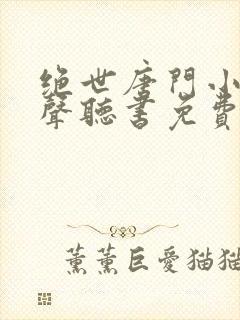 绝世唐門小
聲聽書免費
薰薰巨愛猫猫